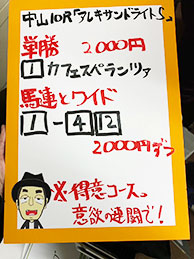 中山10R「アレキサンドライトS」
単勝 2000円
1 カフェスペランツァ
馬連とワイド
1-4 12
2000円ずつ
※得意コース。
意欲の連闘で!